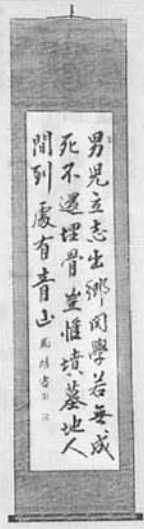 男児立志出鄉関學若無成
死不還埋骨豈惟墳墓地人
間到處有青山